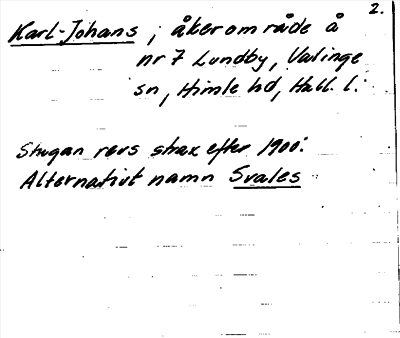 2.
Karl-Johans ; åkerområde å
nr 7 Lundby, Valinge
sn, Himle hd, Hall. l.
Stugan revs strax efter 1900.
Alternativt namn Svales